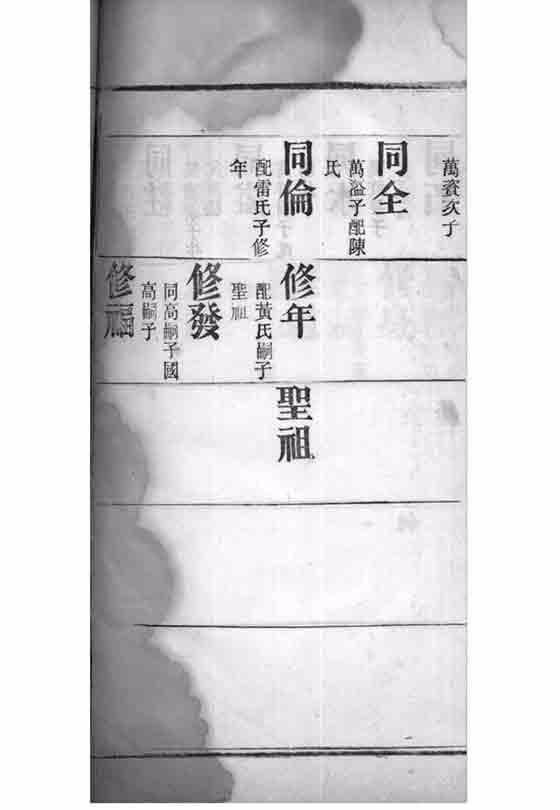 萬賚次子
同全
萬溢子配陳
氏
同倫
配雷氏子修
年
修年
配黃氏嗣子
聖祖
修發
同高嗣子國
修福
高嗣子
聖祖